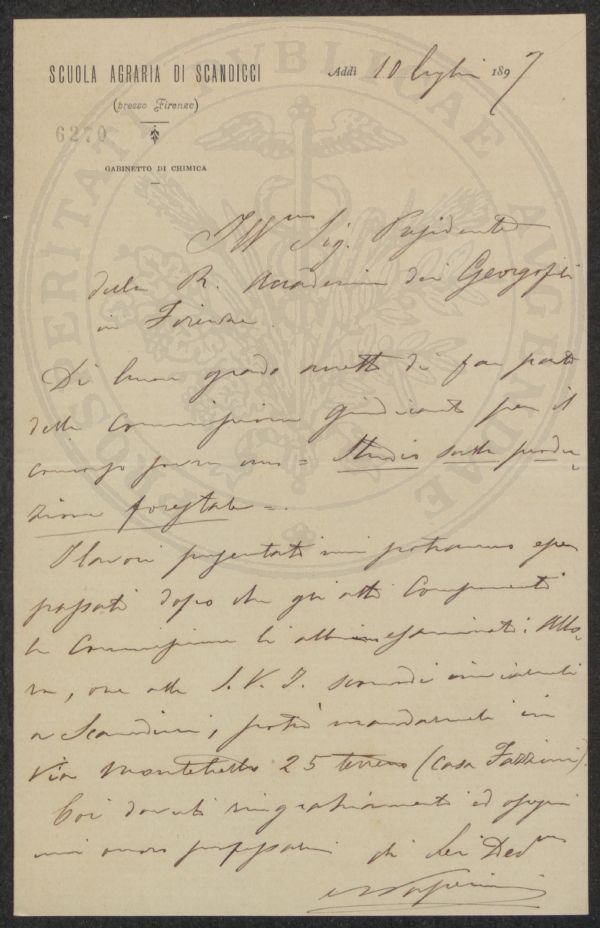 SCUOLA AGRARIA DI SCANDICCI
(presso Firenze)
6270
GABINETTO DI CHIMICA
Addì 10 luglio 1897
PROSPERITATI PUBLICAE AUGENDAE
Ill^mo Sig. Presidente
della R. Accademia dei Georgofili
in Firenze.
Di buon grado accetto di far parte
della Commissione giudicante per il
concorso = Studio sulla produ-
zione forestale =.
I lavori presentati mi potranno esser
passati dopo che gli altri Componenti
la Commissione li abbian esaminati. Allo-
ra, ove alla S. V. I. inviarmeli
a Scandicci, potrà mandarmeli in
Via Montebello 25 terreno (Casa Fazzini).
Coi dovuti ringraziamenti ed ossequi
mi onoro professarmi di Lei Dev^mo